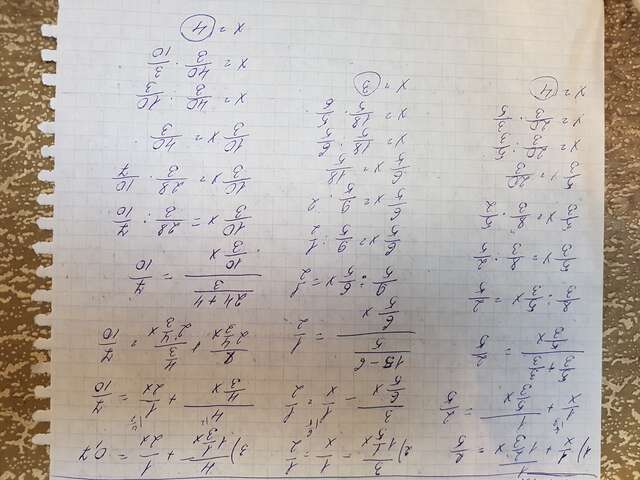 1) 1/x + 1/(1 2/3 x) = 2/5
1/x + 1/(5/3 x) = 2/5
(5/3 + 3/3)/(5/3 x) = 2/5
8/3 : 5/3 x = 2/5
5/3 x = 8/3 : 2/5
5/3 x = 8/3 · 5/2
5/3 x = 20/3
x = 20/3 : 5/3
x = 20/3 · 3/5
x = 4
2) 3/(1 1/5 x) - 1/x = 1/2
3/(6/5 x) - 1/x = 1/2
((15 - 6)/5)/(6/5 x) = 1/2
9/5 : 6/5 x = 1/2
6/5 x = 9/5 : 1/2
6/5 x = 9/5 · 2
6/5 x = 18/5
x = 18/5 : 6/5
x = 18/5 · 5/6
x = 3
3) 4/(1 1/3 x) + 1/2x = 0,7
4/(4/3 x) + 1/2x = 7/10
8/(2 4/3 x) + (4/3)/(2 4/3 x) = 7/10
((24 + 4)/3)/(10/3 x) = 7/10
10/3 x = 28/3 : 7/10
10/3 x = 28/3 · 10/7
10/3 x = 40/3
x = 40/3 : 10/3
x = 40/3 · 3/10
x = 4